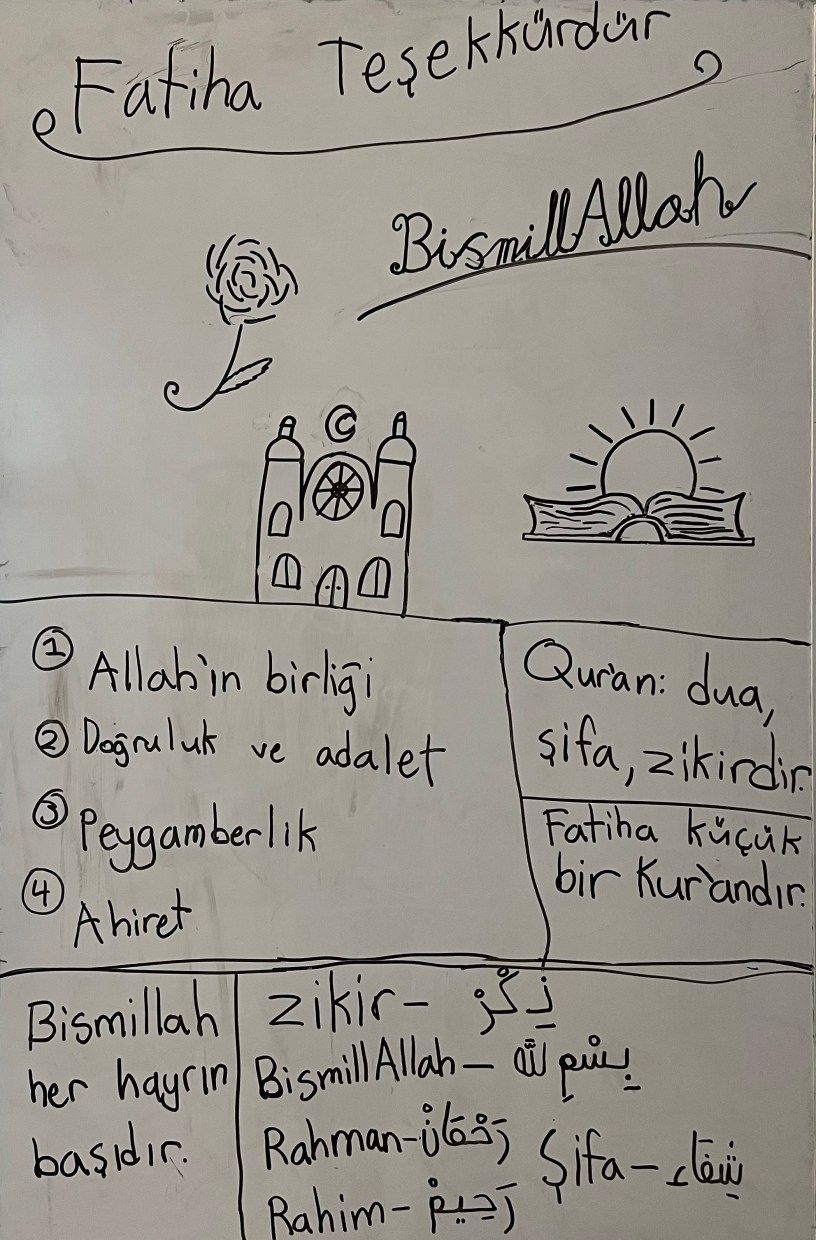 Fatiha Teşekkürdür
BismillAllah
① Allah'ın birliği
② Doğruluk ve adalet
③ Peygamberlik
④ Ahiret
Qur'an: dua,
şifa, zikirdir.
Fatiha küçük
bir Kur'andır.
Bismillah
her hayrın
başıdır.
zikir - ذِكْرْ
BismillAllah - بِسْمِ لله
Rahman - رَحْمَانْ
Rahim - رَحِيمْ
Şifa - شِفَاء